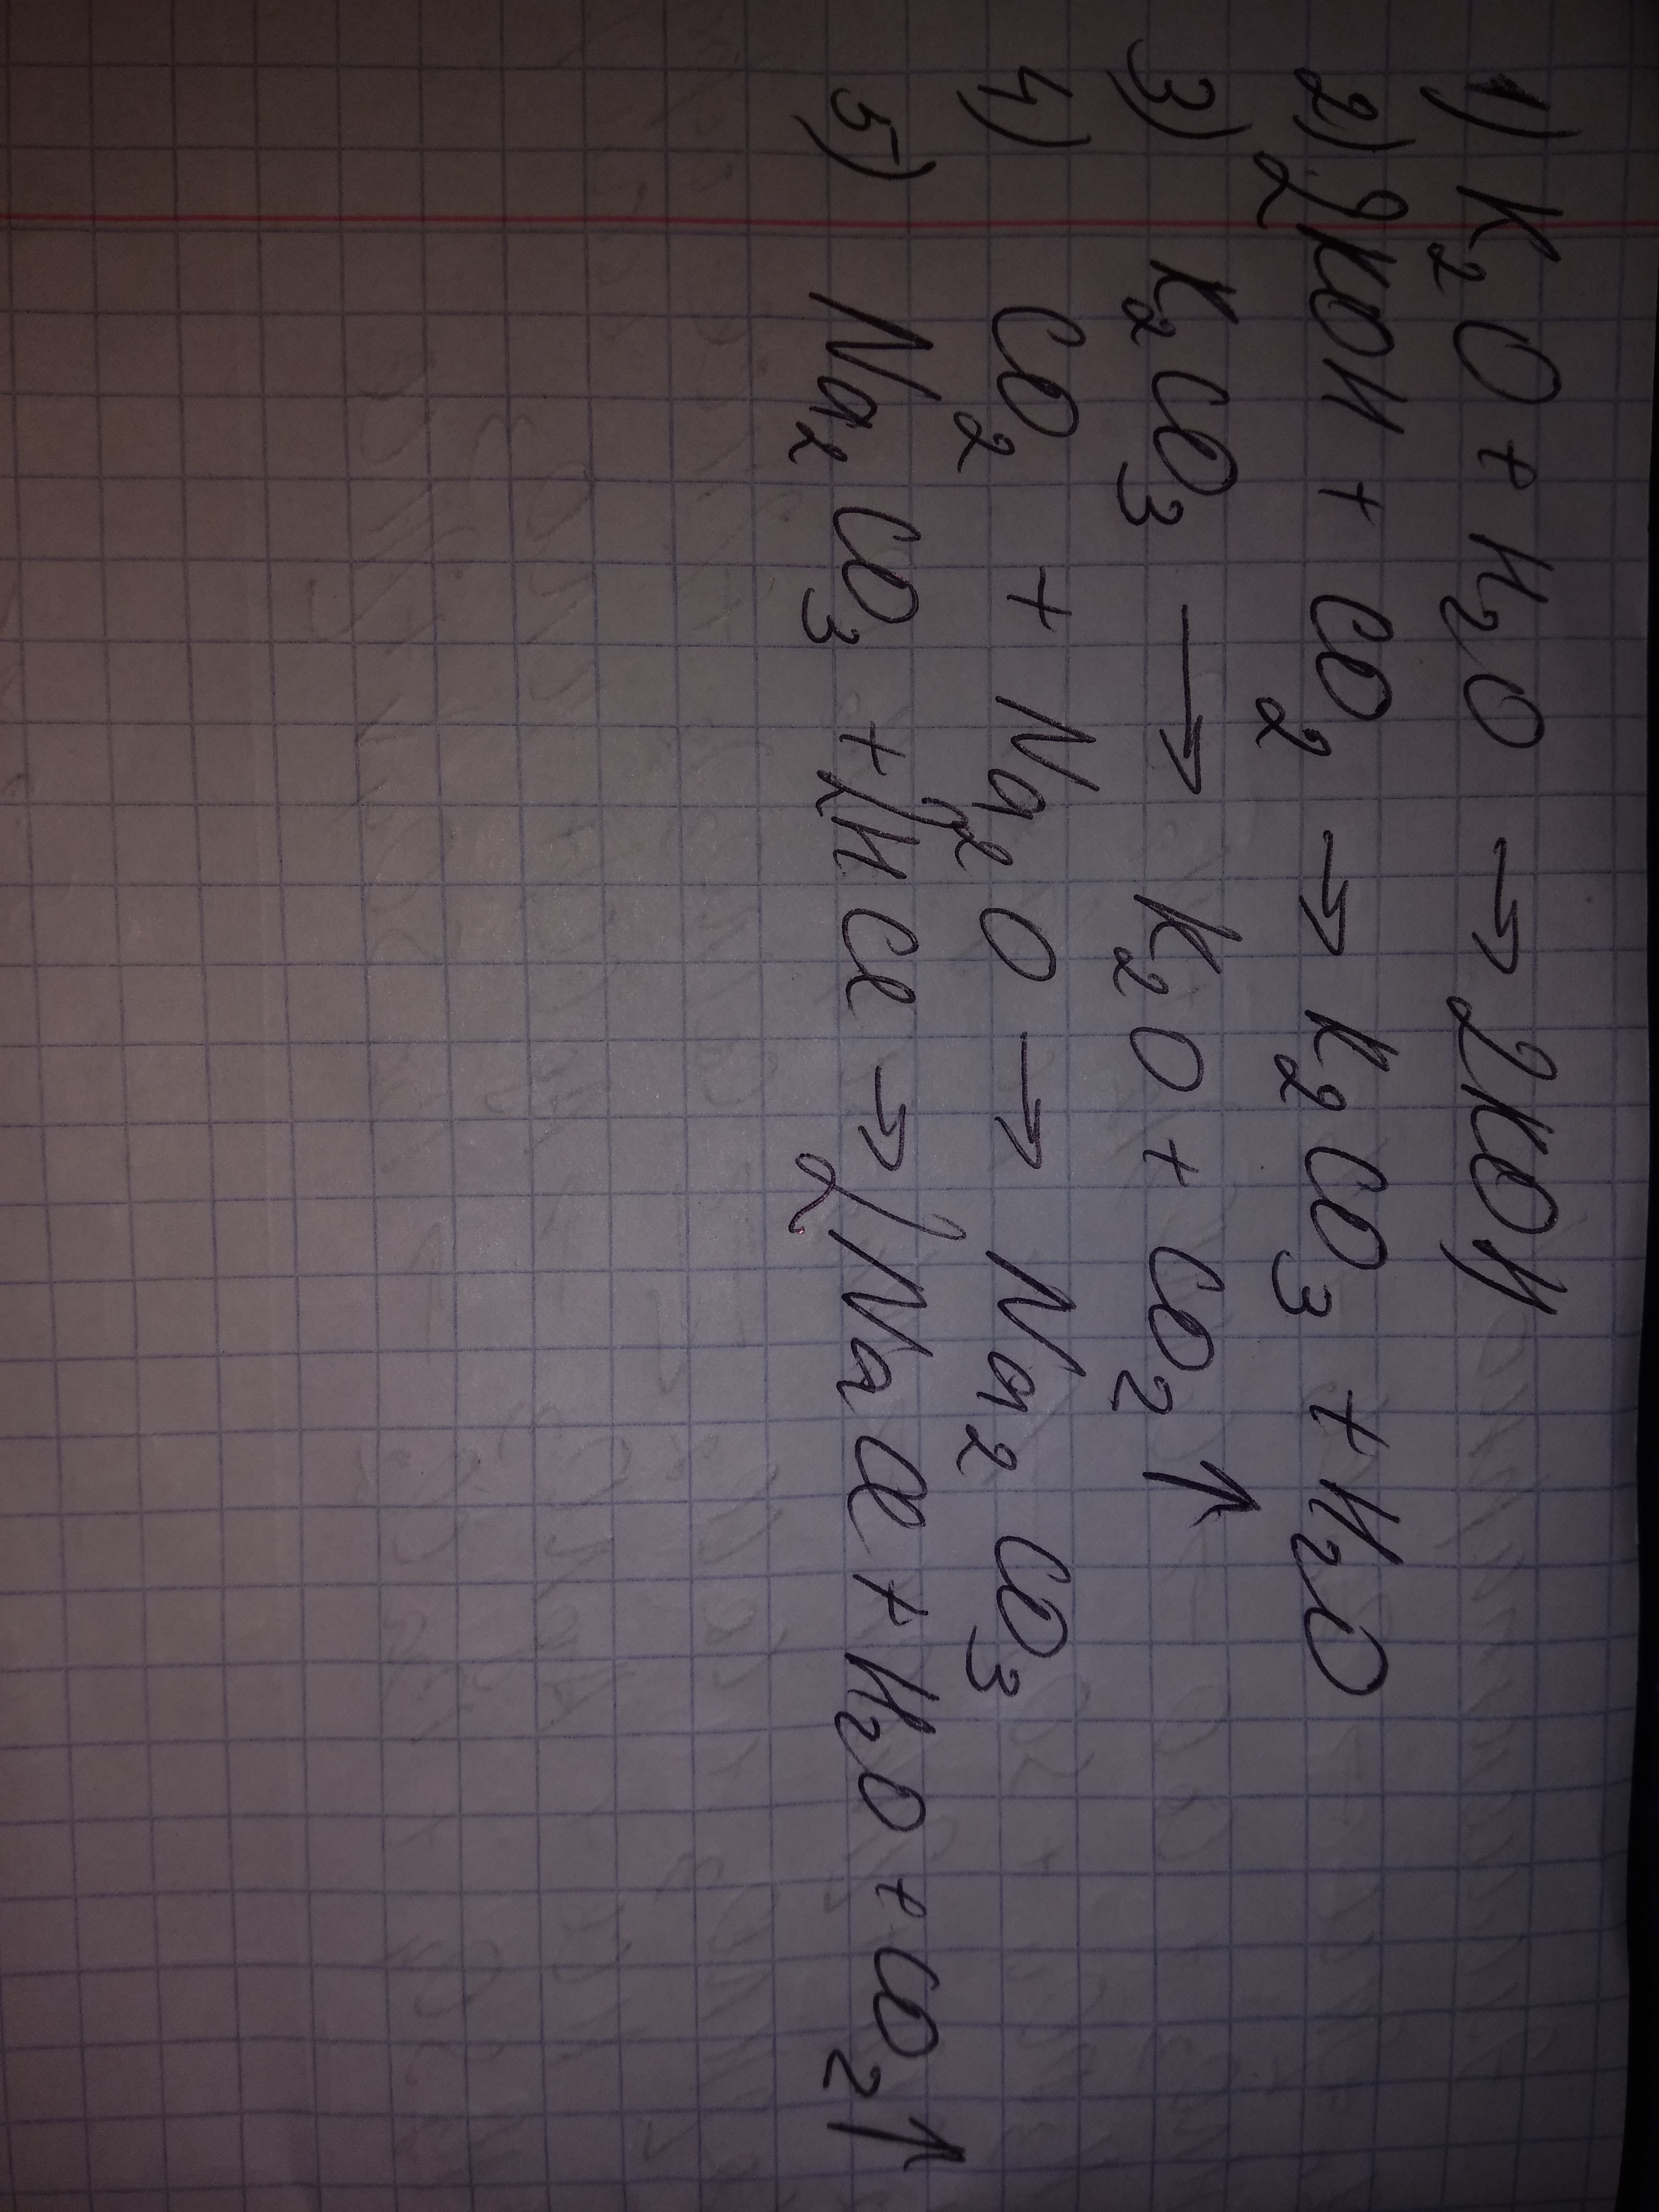 1) K₂O + H₂O → 2KOH
2) 2KOH + CO₂ → K₂CO₃ + H₂O
3) K₂CO₃ → K₂O + CO₂↑
4) CO₂ + Na₂O → Na₂CO₃
5) Na₂CO₃ + 2HCl → 2NaCl + H₂O + CO₂↑